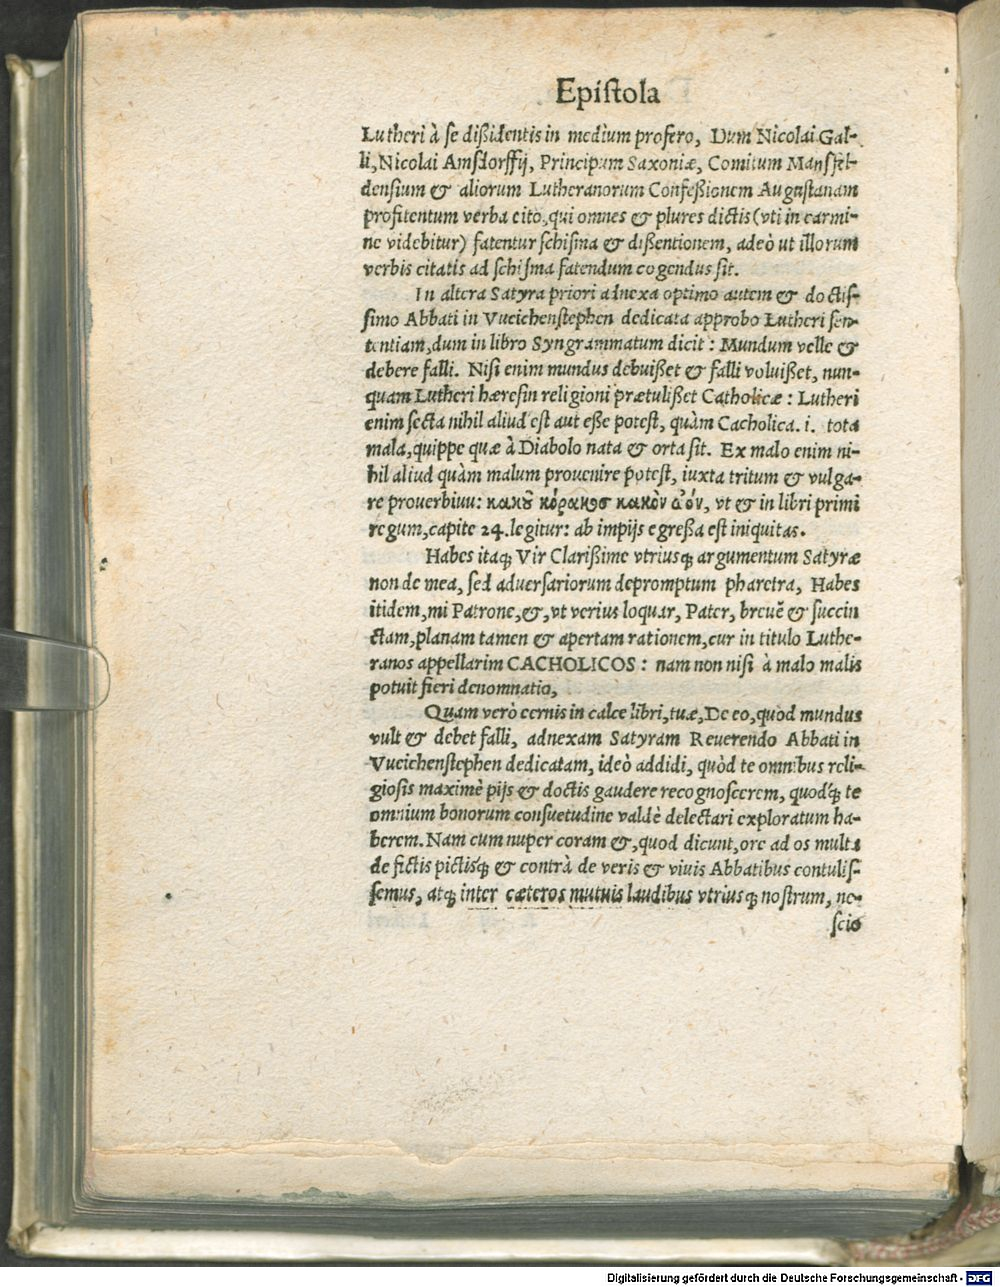 Epiſtola
Lutheri à ſe dißidentis in medium profero, Dum Nicolai Gal-
li, Nicolai Amſdorffij, Principum Saxoniæ, Comitum Manſfel-
denſium & aliorum Lutheranorum Confeßionem Auguſtanam
profitentum verba cito, qui omnes & plures dictis (vti in carmi-
ne videbitur) fatentur ſchiſma & dißentionem, adeò ut illorum
verbis citatis ad ſchiſma fatendum cogendus ſit.
In altera Satyra priori adnexa optimo autem & doctiſ-
ſimo Abbati in Vueichenſtephen dedicata approbo Lutheri ſen-
tentiam, dum in libro Syngrammatum dicit: Mundum velle &
debere falli. Niſi enim mundus debuißet & falli voluißet, nun-
quam Lutheri hæreſin religioni prætulißet Catholicæ: Lutheri
enim ſecta nihil aliud eſt aut eße poteſt, quàm Cacholica. i. tota
mala, quippe quæ à Diabolo nata & orta ſit. Ex malo enim ni-
hil aliud quàm malum prouenire poteſt, iuxta tritum & vulga-
re prouerbiuu: κακȣ͂ κόρακος κακὸν ὠόν, vt & in libri primi
regum, capite 24. legitur: ab impijs egreßa eſt iniquitas.
Habes itaꝗ Vir Clarißime vtriusꝗ argumentum Satyræ
non de mea, ſed aduerſariorum depromptum pharetra, Habes
itidem, mi Patrone, &, vt verius loquar, Pater, breuẽ & ſuccin
ctam, planam tamen & apertam rationem, cur in titulo Luthe-
ranos appellarim CACHOLICOS: nam non niſi à malo malis
potuit fieri denomnatio,
Quam verò cernis in calce libri, tuæ, De eo, quod mundus
vult & debet falli, adnexam Satyram Reuerendo Abbati in
Vueichenſtephen dedicatam, ideò addidi, quòd te omnibus reli-
gioſis maximè pijs & doctis gaudere recognoſcerem, quodꝗ́ te
omnium bonorum conſuetudine valdè delectari exploratum ha-
berem. Nam cum nuper coram &, quod dicunt, ore ad os multa
de fictis pictisꝗ & contrà de veris & viuis Abbatibus contuliſ-
ſemus, atꝗ inter cæteros mutuis laudibus vtriusꝗ noſtrum, ne-
ſcio
Digitalisierung gefördert durch die Deutsche Forschungsgemeinschaft - DFG